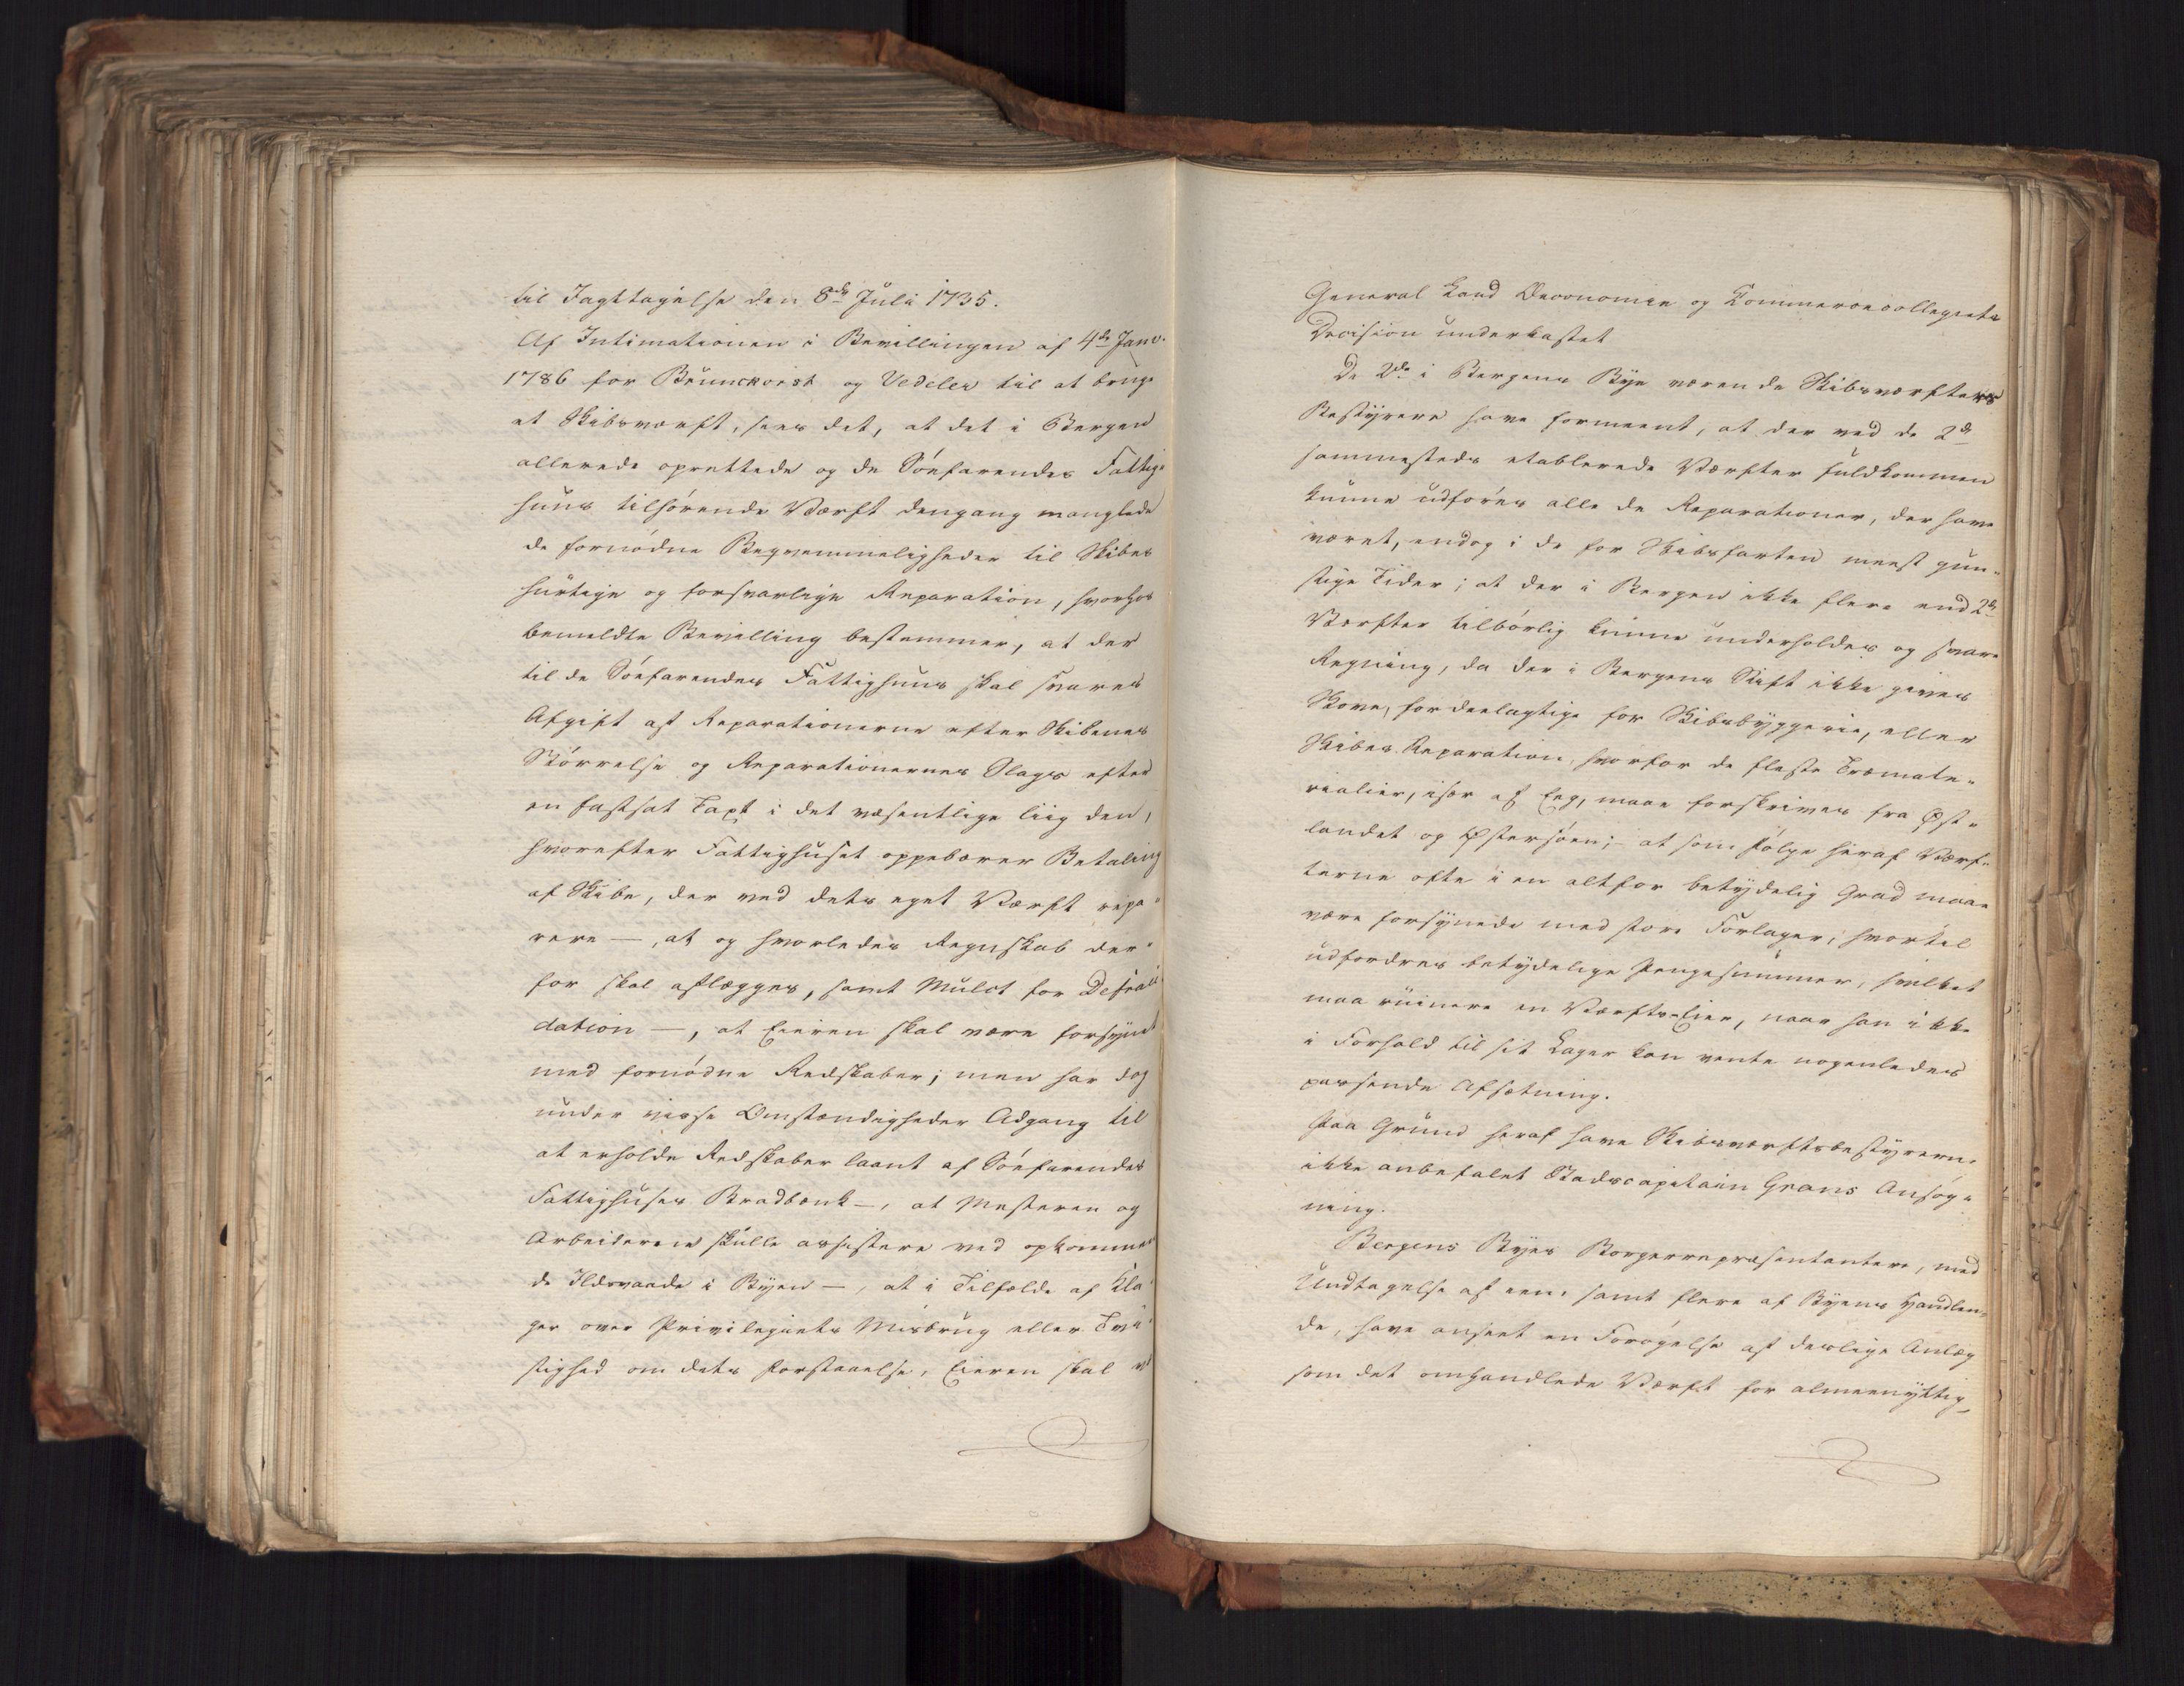 til Iagttagelse den 8de Juli 1735.
Af Intimationen i Bevillingen af 4de Janv.
1786 for Brunchorst og Vedeler til at bruge
et Skibsværft, sees det, at det i Bergen
allerede oprettede og de Söefarendes Fattig-
huus tilhørende Værft dengang manglede
de fornødne Beqvemmeligheder til Skibes
hurtige og forsvarlige Reparation, hvorhos
bemeldte Bevilling bestemmer, at der
til de Söefarendes Fattighuus skal svares
Afgift af Reparationerne efter Skibenes
Störrelse og Reparationernes Slags efter
en fastsat Taxt i det væsentlige liig den,
hvorefter Fattighuset oppebærer Betaling
af Skibe, der ved dets eget Værft repa-
rere —, at og hvorledes Regnskab der-
for skal aflægges, samt Mulct for Defrau-
dation —, at Eieren skal være forsynet
med fornødne Redskaber; men har dog
under visse Omstændigheder Adgang til
at erholde Redskaber laant af Söefarendes
Fattighuses Bradbænk —, at Mesteren og
Arbeiderne skulle assistere ved opkommen-
de Ildsvaade i Byen —, at i Tilfælde af Kla-
ger over Privilegiets Misbrug eller Tvi-
stighed om dets Forstaaelse, Eieren skal v
General Land Oeconomie og Commercecollegiets
Decision underkastet
De 2de i Bergens Bye værende Skibsværfters
Bestyrere have formeent, at der ved de 2de
sammesteds etablerede Værfter fuldkommen
kunne udføres alle de Reparationer, der have
været, endog i de for Skibsfarten meest gun-
stige Tider; at der i Bergen ikke flere end 2de
Værfter tilbørlig kunne underholdes og svare
Regning, da der i Bergens Stift ikke gives
Skove, fordeelagtige for Skibsbyggerie, eller
Skibes Reparation, hvorfor de fleste Træmate-
rialier, især af Eeg, maae forskrives fra Øst-
landet og Østersöen; at som Følge heraf Værf-
terne ofte i en altfor betydelig Grad maae
være forsynede med store Forlager, hvortil
udfordres betydelige Pengesummer, hvilket
maa ruinere en Værfts-Eier, naar han ikke
i Forhold til sit Lager kan vente nogenledes
passende Afsætning.
Paa Grund heraf have Skibsværftsbestyrerne
ikke anbefalet Stadscapitain Grans Ansøg-
ning.
Bergens Byes Borgerrepræsentantere, med
Undtagelse af een, samt flere af Byens Handlen-
de, have anseet en Forøgelse af deslige Anlæg
som det omhandlede Værft for almeennyttig,